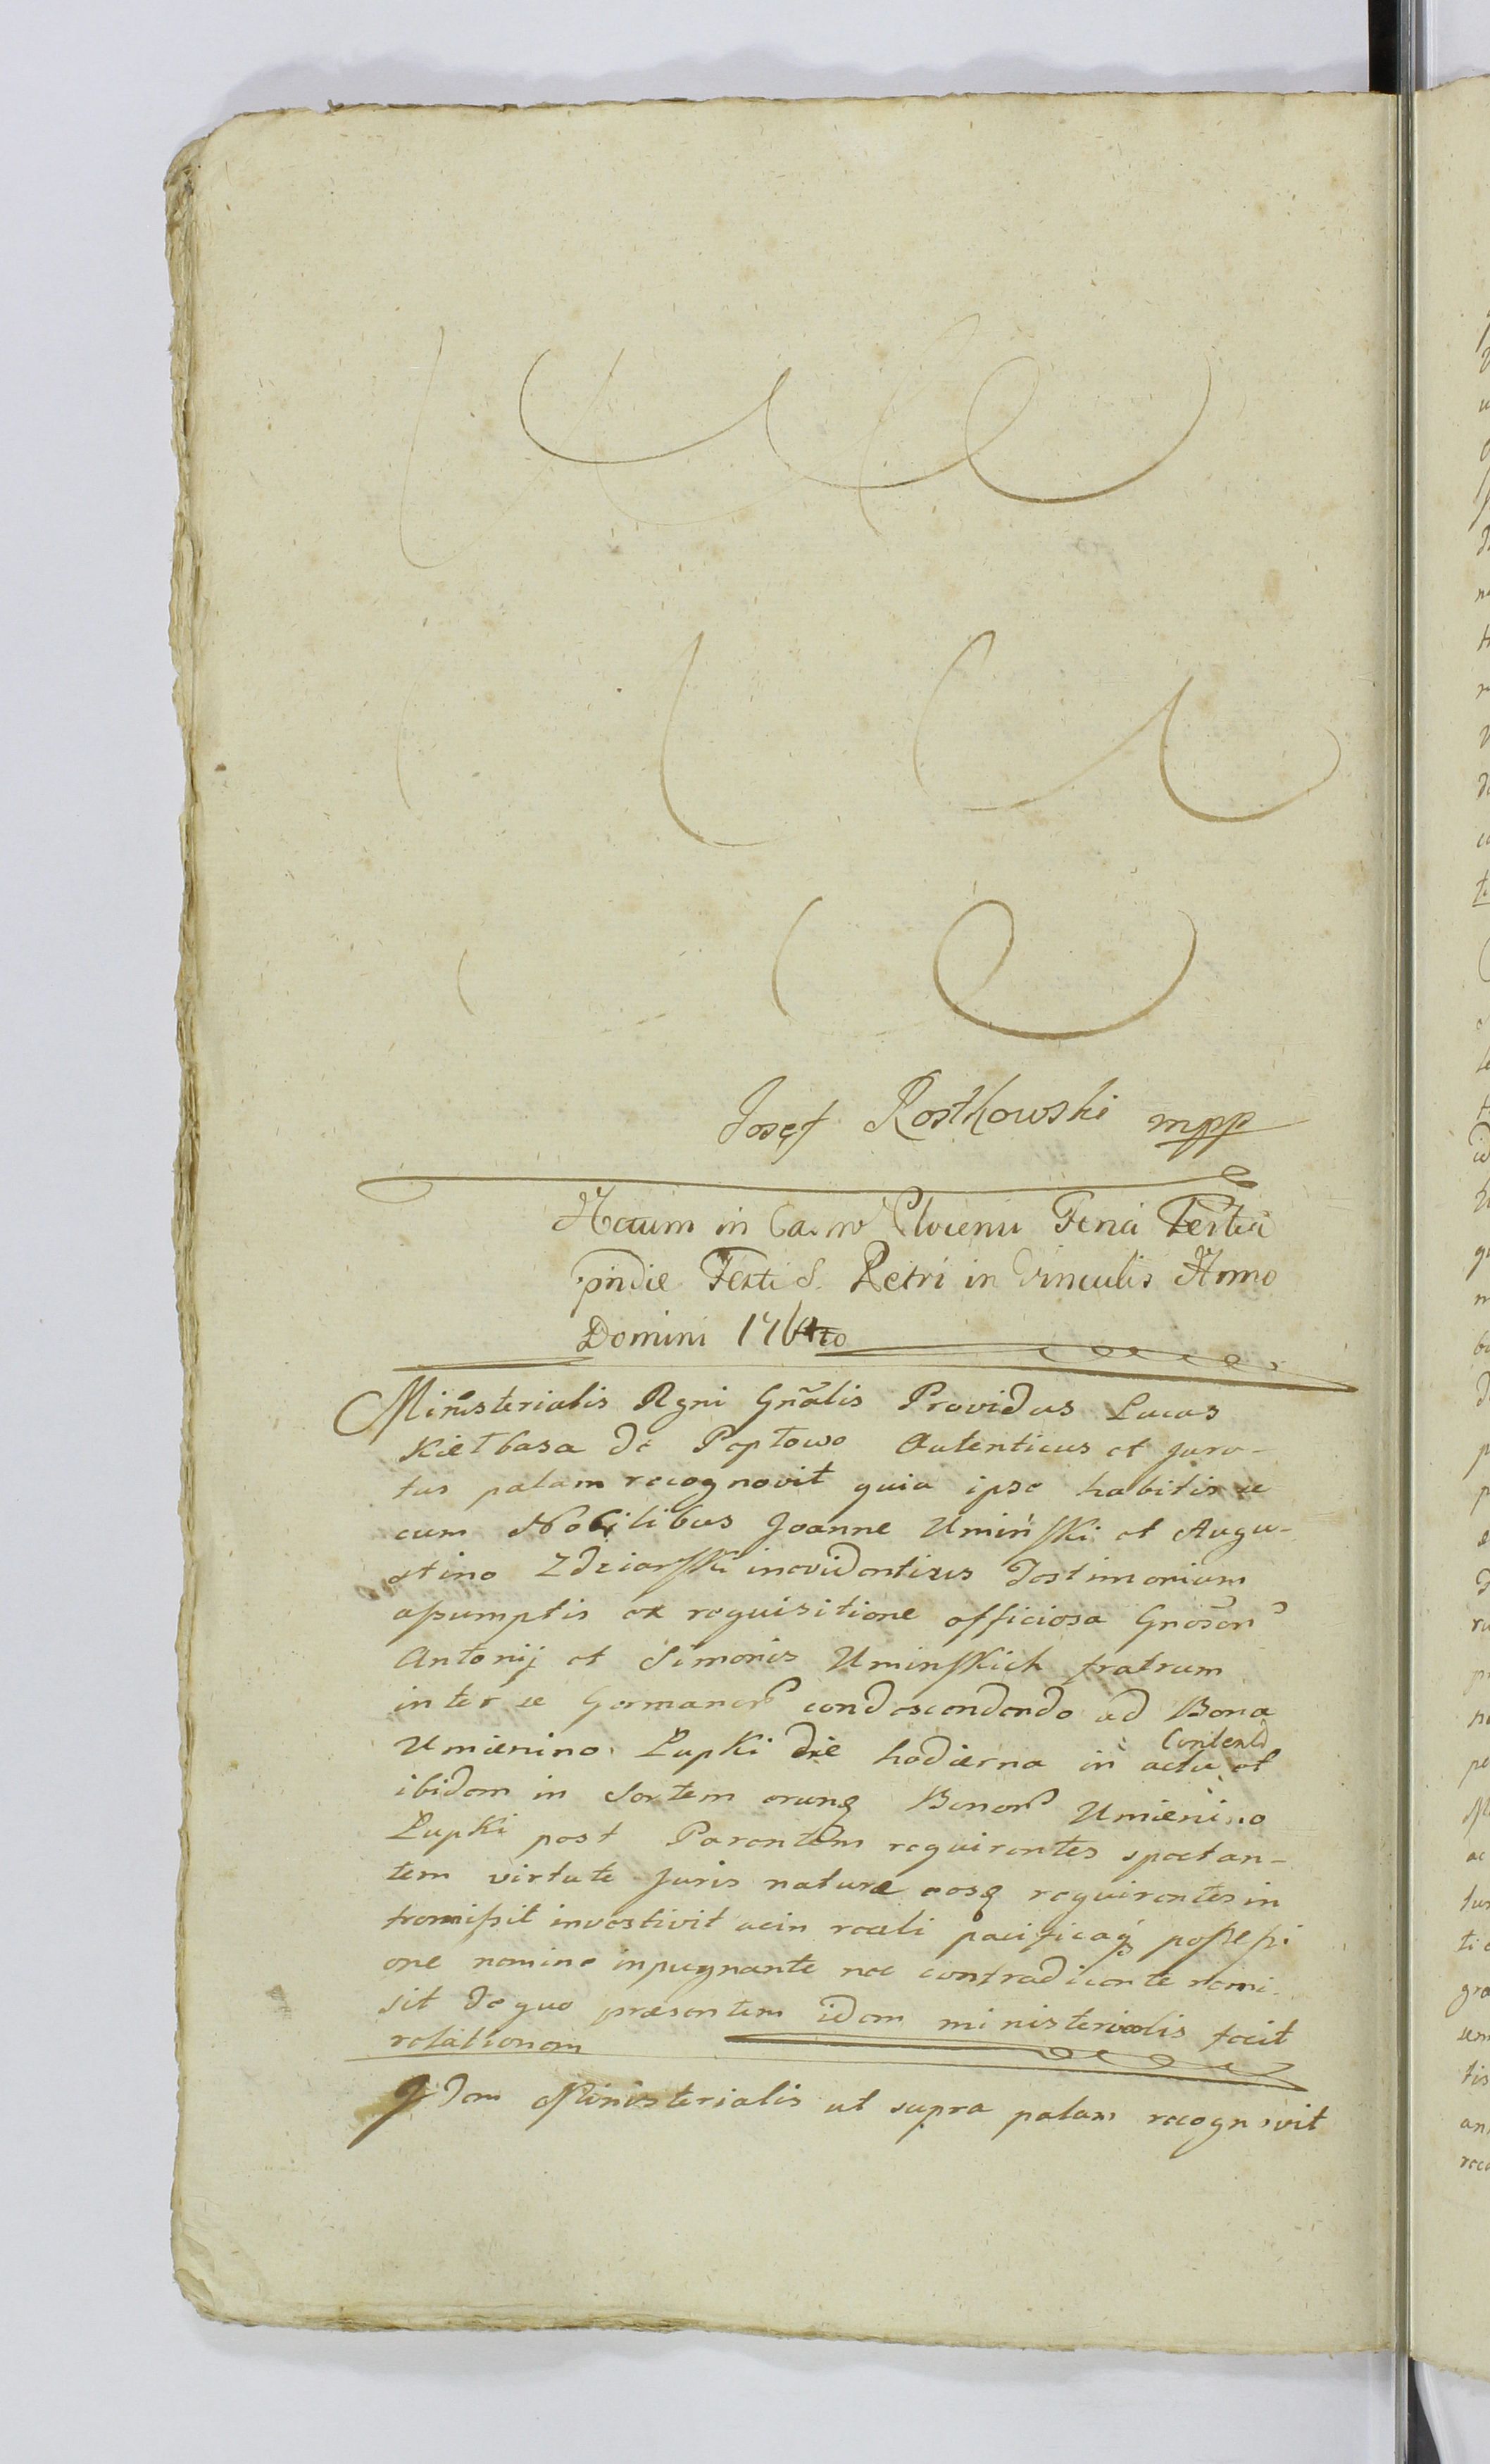 Josef Rostkowski mpp
Actum in Castro Plocensi Feria Tertia
pridie Festi S. Petri in Vinculis Anno
Domini 1764to
Ministerialis Rgni Gn̄alis Providus Lucas
Kiełbasa de Popłowo Autenticus et Jura-
tus palam recognovit quia ipse habitis se
cum Nobilibus Joanne Umińſki et Augu-
stino Zdziarſki in evidentius Testimonium
aſsumptis ex requisitione officiosa Gnosor
Antonij et Simonis Uminſkich fratrum
inter se Germanor condescendendo ad Bona
Umienino Łupki die hodierna in actu Content et
ibidem in Sortem orunq Bonor Umienino
Łupki post Parentem requirentes spectan-
tem virtute Juris naturæ eosq requirentes in
tromiſsit investivit acin reali pacificaq poſseſsi
one nemine inpugnante nec contradicente remi-
sit de quo præsentem idem ministerialis fecit
relationem
Idem Ministerialis ut supra palam recognovit